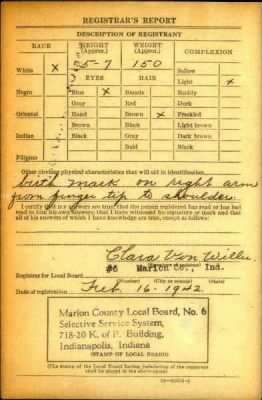 REGISTRAR'S REPORT
DESCRIPTION OF REGISTRANT
RACE HEIGHT (Approx.) WEIGHT (Approx.) COMPLEXION
5-7 150
White X Sallow
EYES HAIR Light X
Negro Blue X Blonde Ruddy
Gray Red Dark
Oriental Hazel Brown X Freckled
Brown Black Light brown
Indian Black Gray Dark brown
Bald Black
Filipino
Other obvious physical characteristics that will aid in identification
birth mark on right arm
from finger tip to shoulder.
I certify that my answers are true; that the person registered has read or has had
read to him his own answers; that I have witnessed his signature or mark and that
all of his answers of which I have knowledge are true, except as follows:
Clara Von Willer
Registrar for Local Board #6 Marion Co., Ind.
(Number) (City or county) (State)
Date of registration Feb. 16-1942
Marion County Local Board, No. 6
Selective Service System,
718-20 K. of P. Building,
Indianapolis, Indiana
(STAMP OF LOCAL BOARD)
(The stamp of the Local Board having jurisdiction of the registrant
shall be placed in the above space.)